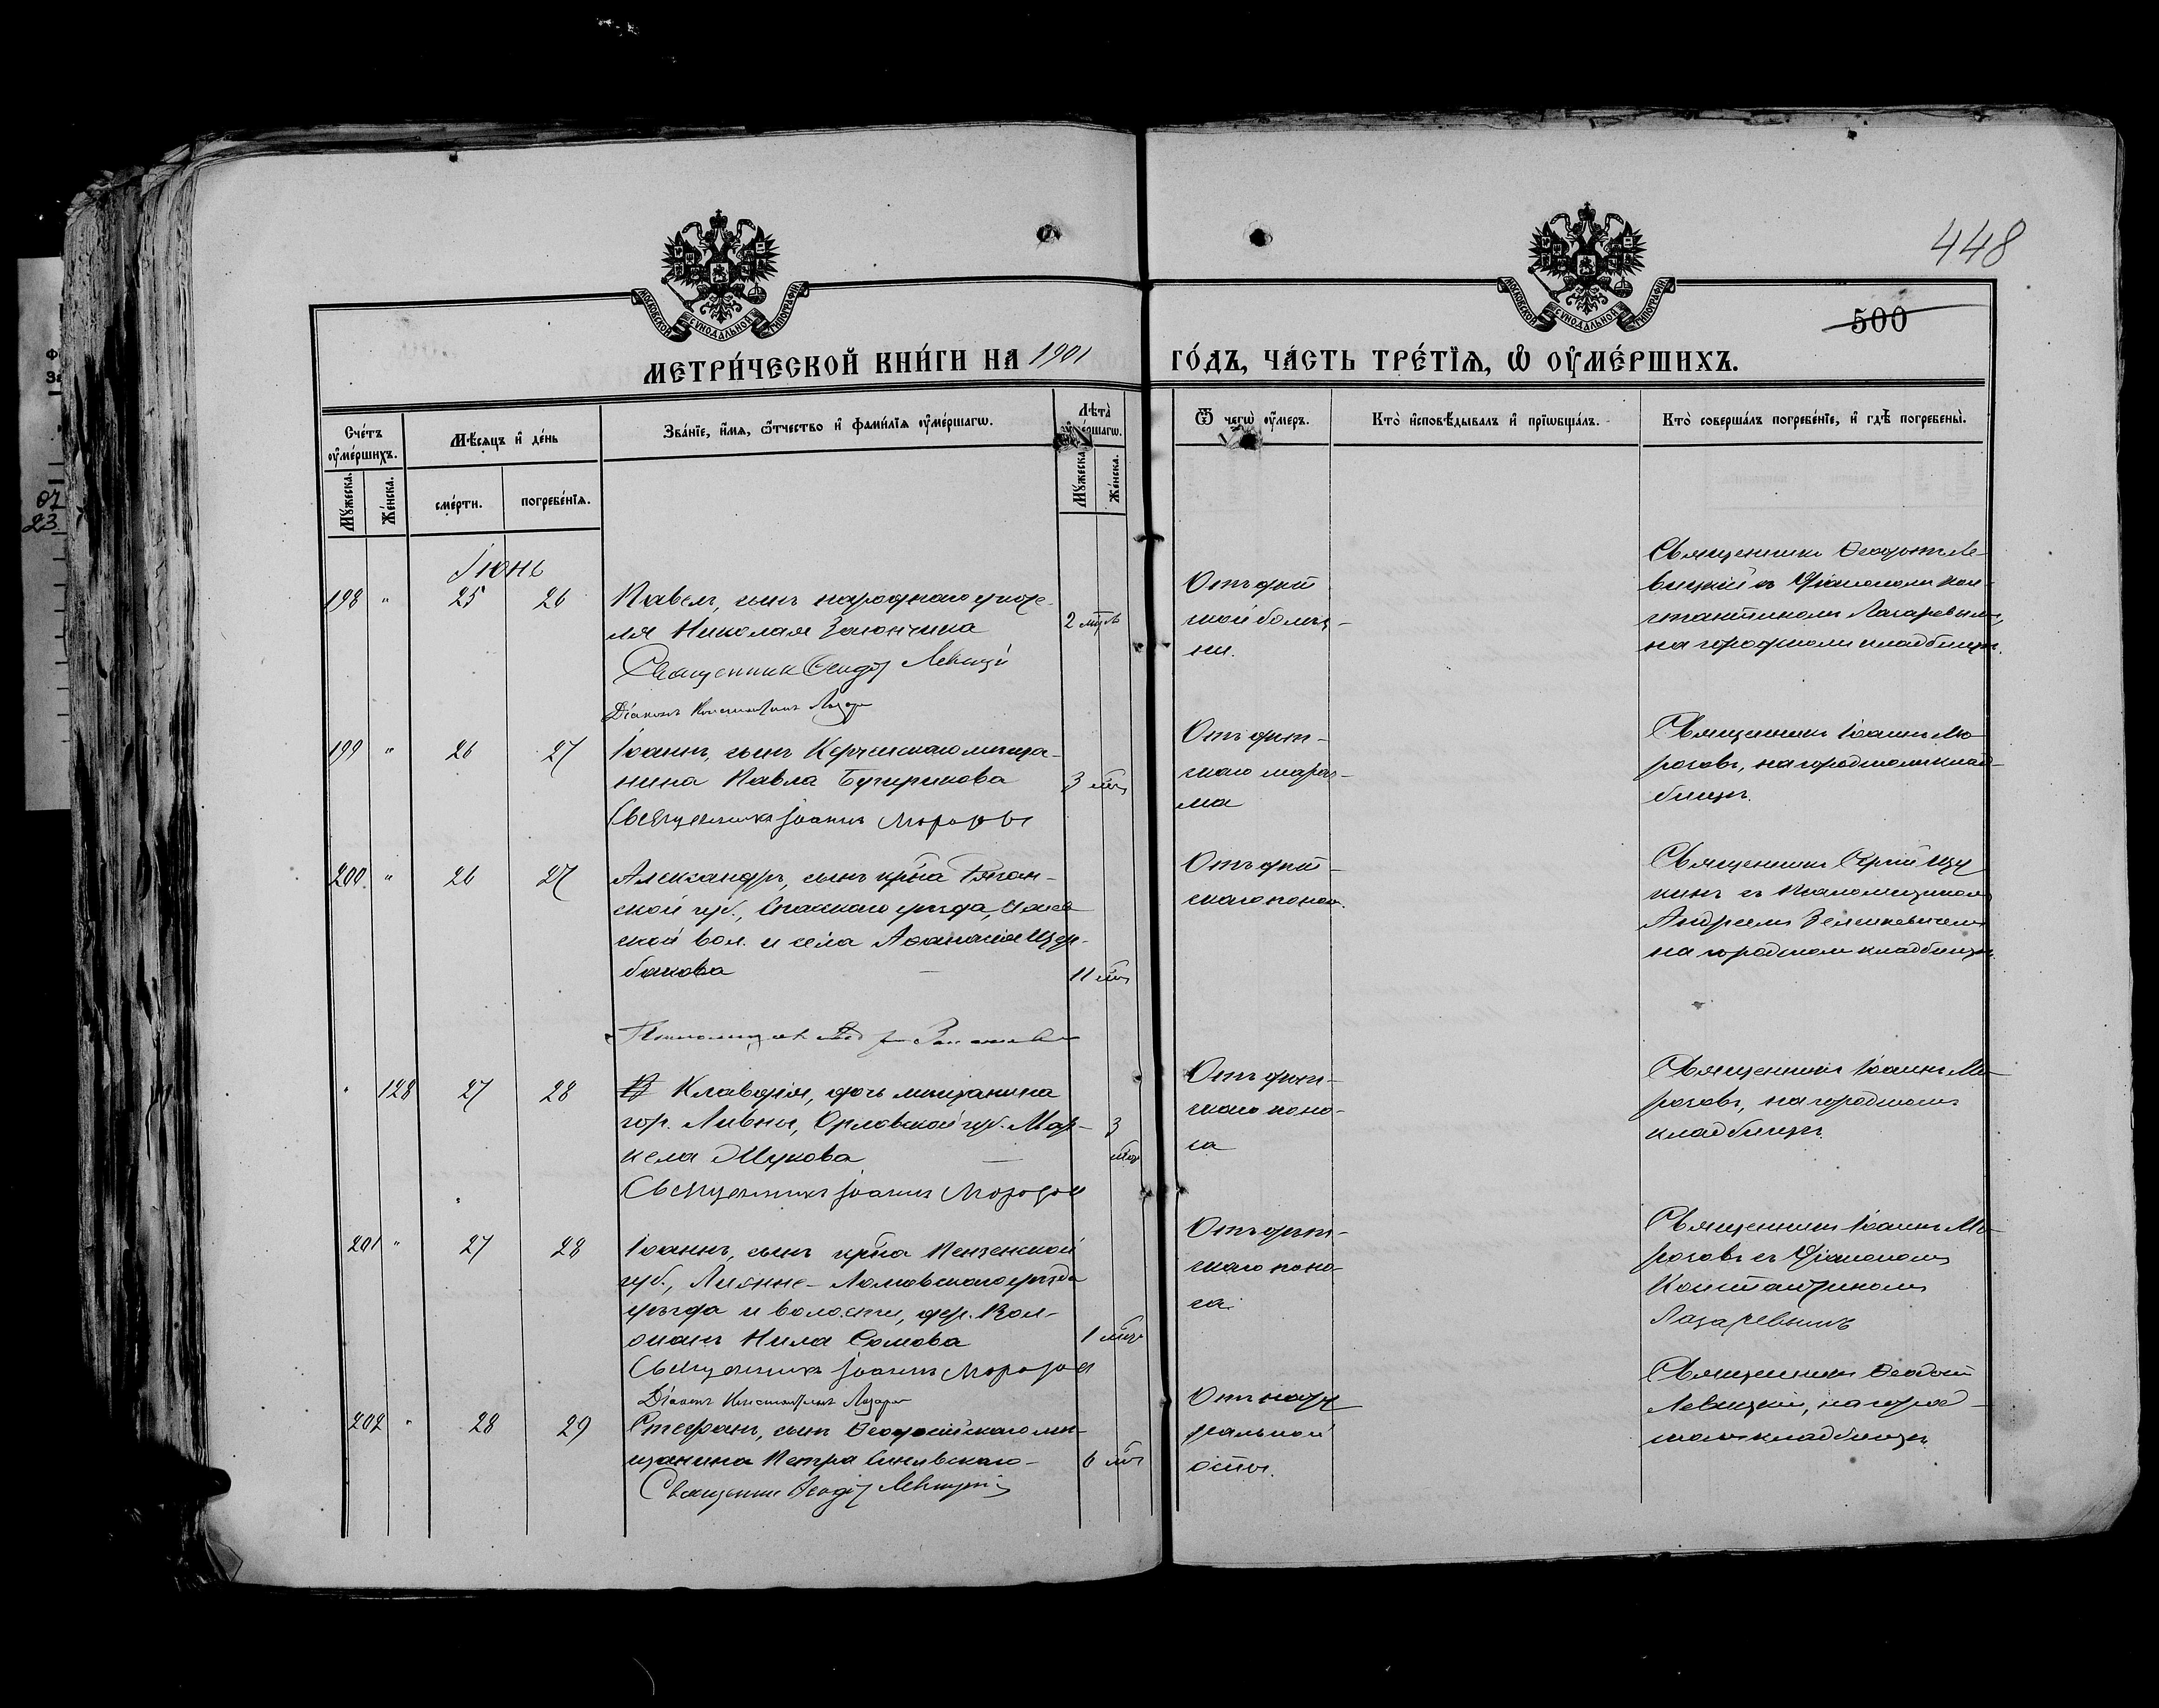 448
500
МОСКОВСКОЙ СѴНОДАЛЬНОЙ ТИПОГРАФІИ
МОСКОВСКОЙ СѴНОДАЛЬНОЙ ТИПОГРАФІИ
МЕТРИ́ЧЕСКОЙ КНИ́ГИ НА 1901 ГО́ДЪ, ЧА́СТЬ ТРЕ́ТЇѦ, Ѡ҆ ОУ҆МЕ́РШИХЪ.
Сче́тъ оу҆ме́ршихъ.
Мꙋ́жеска.
Же́нска.
Мѣ́сяцъ и҆ де́нь
сме́рти.
погребе́нїѧ.
Зва́нїе, и҆́мѧ, ѻ҆́тчество и҆ фами́лїѧ оу҆ме́ршагѡ.
Лѣта̀ оу҆ме́ршагѡ.
Мꙋ́жеска.
Же́нска.
Ѿ чегѡ̀ оу҆́меръ.
Кто̀ и҆сповѣ́дывалъ и҆ прїѡбща́лъ.
Кто̀ соверша́лъ погребе́нїе, и҆ гдѣ̀ погребены̀.
Іюнь
198 " 25 26
Павелъ, сынъ народнаго учите-
ля Николая
Священникъ Ѳеодот Левицкій
Діаконъ Константинъ Лазаре
2 мц
Отъ дѣт
ской болѣз-
ни.
Священникъ Ѳеодотъ Ле-
вицкій съ діакономъ Кон-
стантиномъ Лазаревымъ,
на городскомъ кладбищѣ.
199 " 26 27
Іоаннъ, сынъ Керченскаго мѣща-
нина Павла
Священникъ Іоаннъ Морозовъ
3 мѣс
Отъ дѣт-
скаго мараз-
ма
Священникъ Іоаннъ Мо
розовъ, на городскомъ клад-
бищѣ.
200. " 26 27
Александръ, сынъ кр-на Рязан-
ской губ., Спасскаго уѣзда,
ской вол. и села Аѳанасія Щер-
бакова
11 мѣс
Отъ дѣт-
скаго поноса.
Священникъ Сергій Щу
кинъ съ Псаломщикомъ
Андреемъ
на городскомъ кладбищѣ.
" 128 27 28
Клавдія, дочь мѣщанина
гор. Ливны, Орловской губ. Мар-
кела Жукова
Священникъ Іоаннъ Морозов
3
мѣс
Отъ дѣт-
скаго поно-
са
Священникъ Іоаннъ Мо
розовъ, на городскомъ
кладбищѣ.
201 " 27 28
Іоаннъ, сынъ кр-на Пензенской
губ., Ломовскаго уѣзда
уѣзда и волости, дер.
Нила Сомова
Священникъ Іоаннъ Морозов
Діаконъ Константинъ Лазаре
1 мѣс
Отъ дѣт-
скаго поно-
са.
Священникъ Іоаннъ Мо-
розовъ съ Діакономъ
Константиномъ
Лазаревымъ
202 " 28 29
Стефанъ, сынъ Ѳеодосійскаго мѣ-
щанина Петра
Священник Ѳеодот Левицкій
6 мѣс
Отъ нату
ральной
оспы.
Священникъ Ѳеодотъ
Левицкій, на город-
скомъ кладбищѣ.